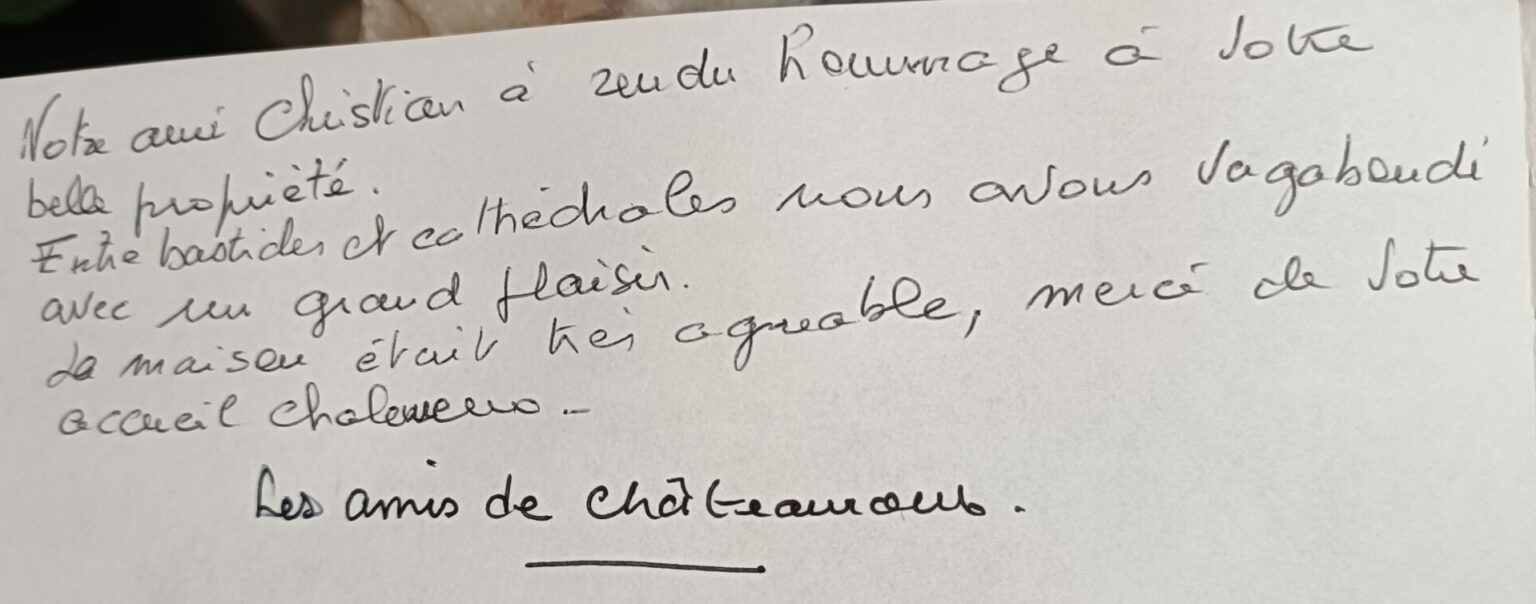 Notre ami Christian à rendu hommage à votre
belle proprièté.
Entre bastides et cathédrales nous avons vagabondé
avec un grand plaisir.
La maison était très agréable, merci de votre
accueil chaleureux.
Les amis de châteauroux.